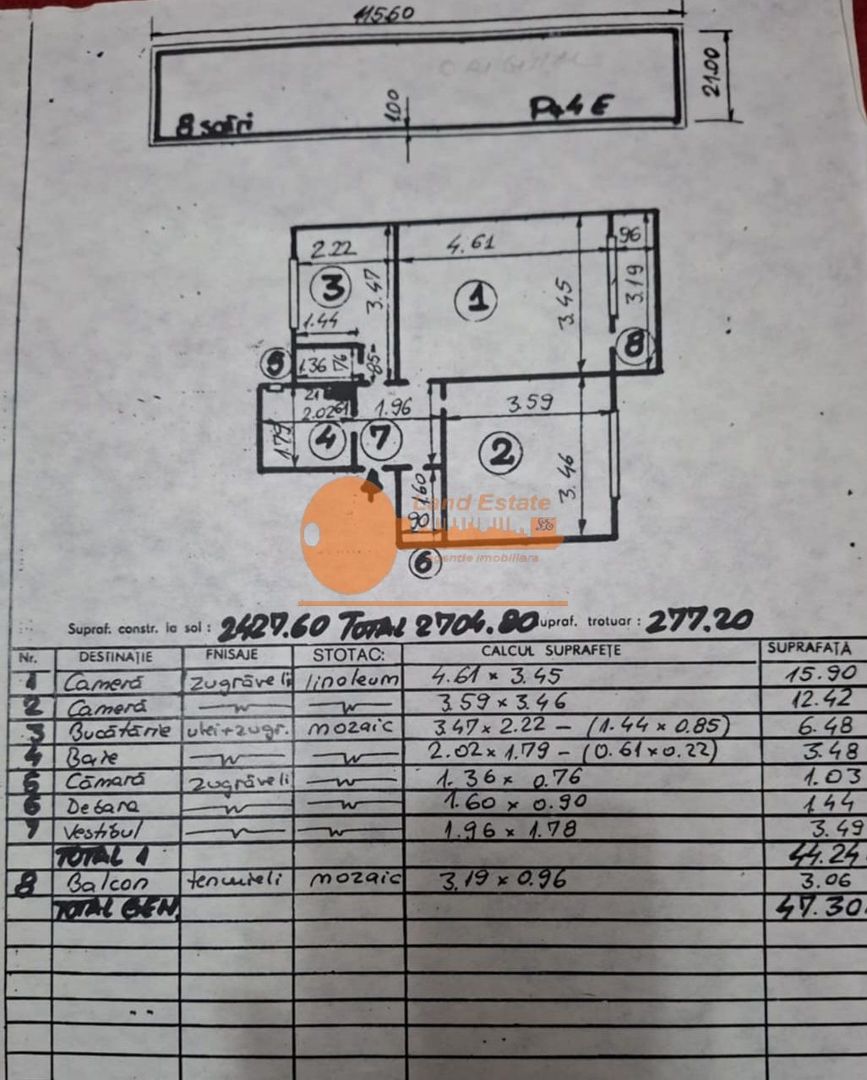 115.60
ORIGINAL
21.00
8 scări
100
P+4E
2.22
4.61
96
3
3.47
1
3.45
3.19
1.44
8
5
1.36
76
85
21
2.02
61
1.96
3.59
1.79
4
7
2
3.46
1.60
90
6
Land Estate
Agentie imobiliara
Supraf. constr. la sol : 2427.60 TOTAL 2704.80 upraf. trotuar : 277.20
Nr. DESTINAȚIE FNISAJE STOTAC: CALCUL SUPRAFEȚE SUPRAFAȚĂ
1 Cameră zugrăveli linoleum 4.61 × 3.45 15.90
2 Cameră —"— —"— 3.59 × 3.46 12.42
3 Bucătărie ulei+zugr. mozaic 3.47 × 2.22 – (1.44 × 0.85) 6.48
4 Baie —"— —"— 2.02 × 1.79 – (0.61 × 0.22) 3.48
5 Cămară zugrăveli —"— 1.36 × 0.76 1.03
6 Debara —"— —"— 1.60 × 0.90 1.44
7 Vestibul —"— —"— 1.96 × 1.78 3.49
TOTAL 1 44.24
8 Balcon tencuieli mozaic 3.19 × 0.96 3.06
TOTAL GEN. 47.30